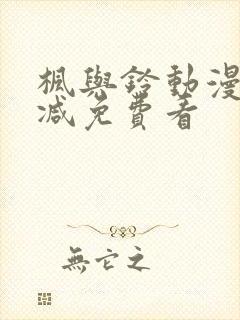 楓與鈴動漫
減免費看
無它之